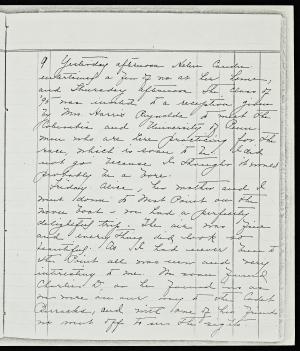 9 Yesterday afternoon Helen Candee
entertained a few of us at her home,
and Thursday afternoon the class of
'96 was invited to a reception given
by Mrs Harris Reynolds to meet the
Columbia and University of Penn-
men who are here practicing for the
race, which is soon to be. I did
not go because I thought it would
probably be a bore.
Friday Alice, his mother and I
went down to West Point on the
noon boat - we had a perfectly
delightful trip. The air was fine
and everything did look so
beautiful. As I had never been to
the Point all was new and very
interesting to me. We soon found
Charles D. as he joined us as
we were on our way to the Cadet
Barracks, and with some of his friends
we went off to see the sights.